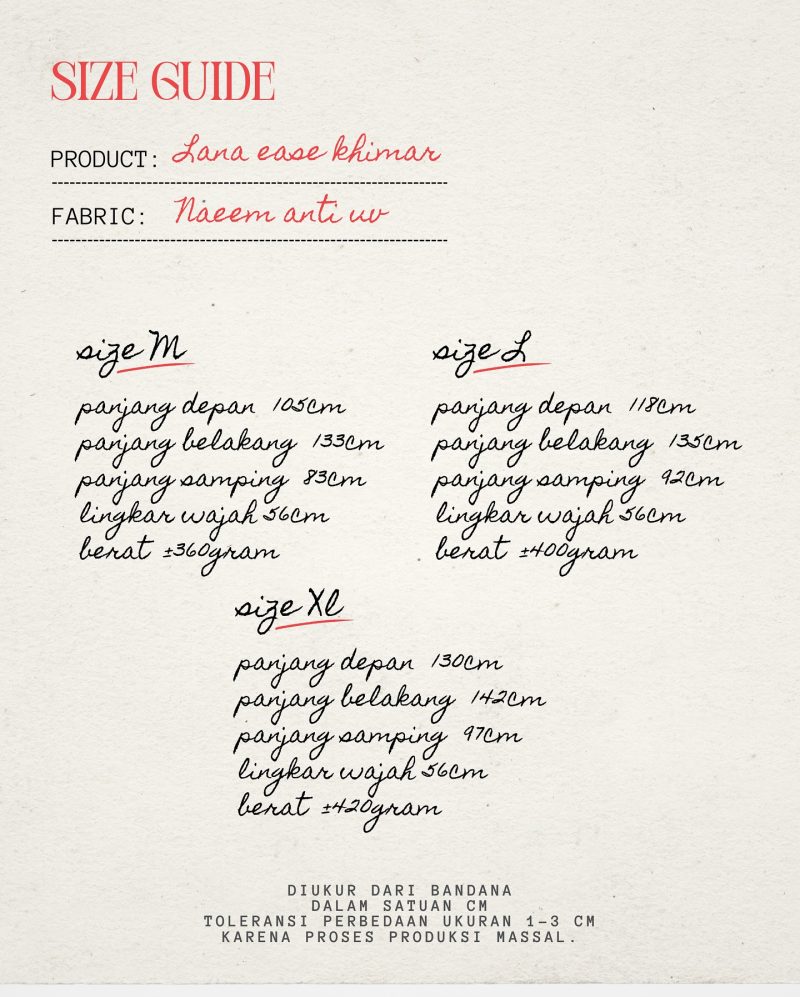 SIZE GUIDE
PRODUCT: Lana ease khimar
FABRIC: Naeem anti uv
size M
panjang depan 105cm
panjang belakang 133cm
panjang samping 83cm
lingkar wajah 56cm
berat ±360gram
size L
panjang depan 118cm
panjang belakang 135cm
panjang samping 92cm
lingkar wajah 56cm
berat ±400gram
size Xl
panjang depan 130cm
panjang belakang 142cm
panjang samping 97cm
lingkar wajah 56cm
berat ±420gram
DIUKUR DARI BANDANA
DALAM SATUAN CM
TOLERANSI PERBEDAAN UKURAN 1-3 CM
KARENA PROSES PRODUKSI MASSAL.